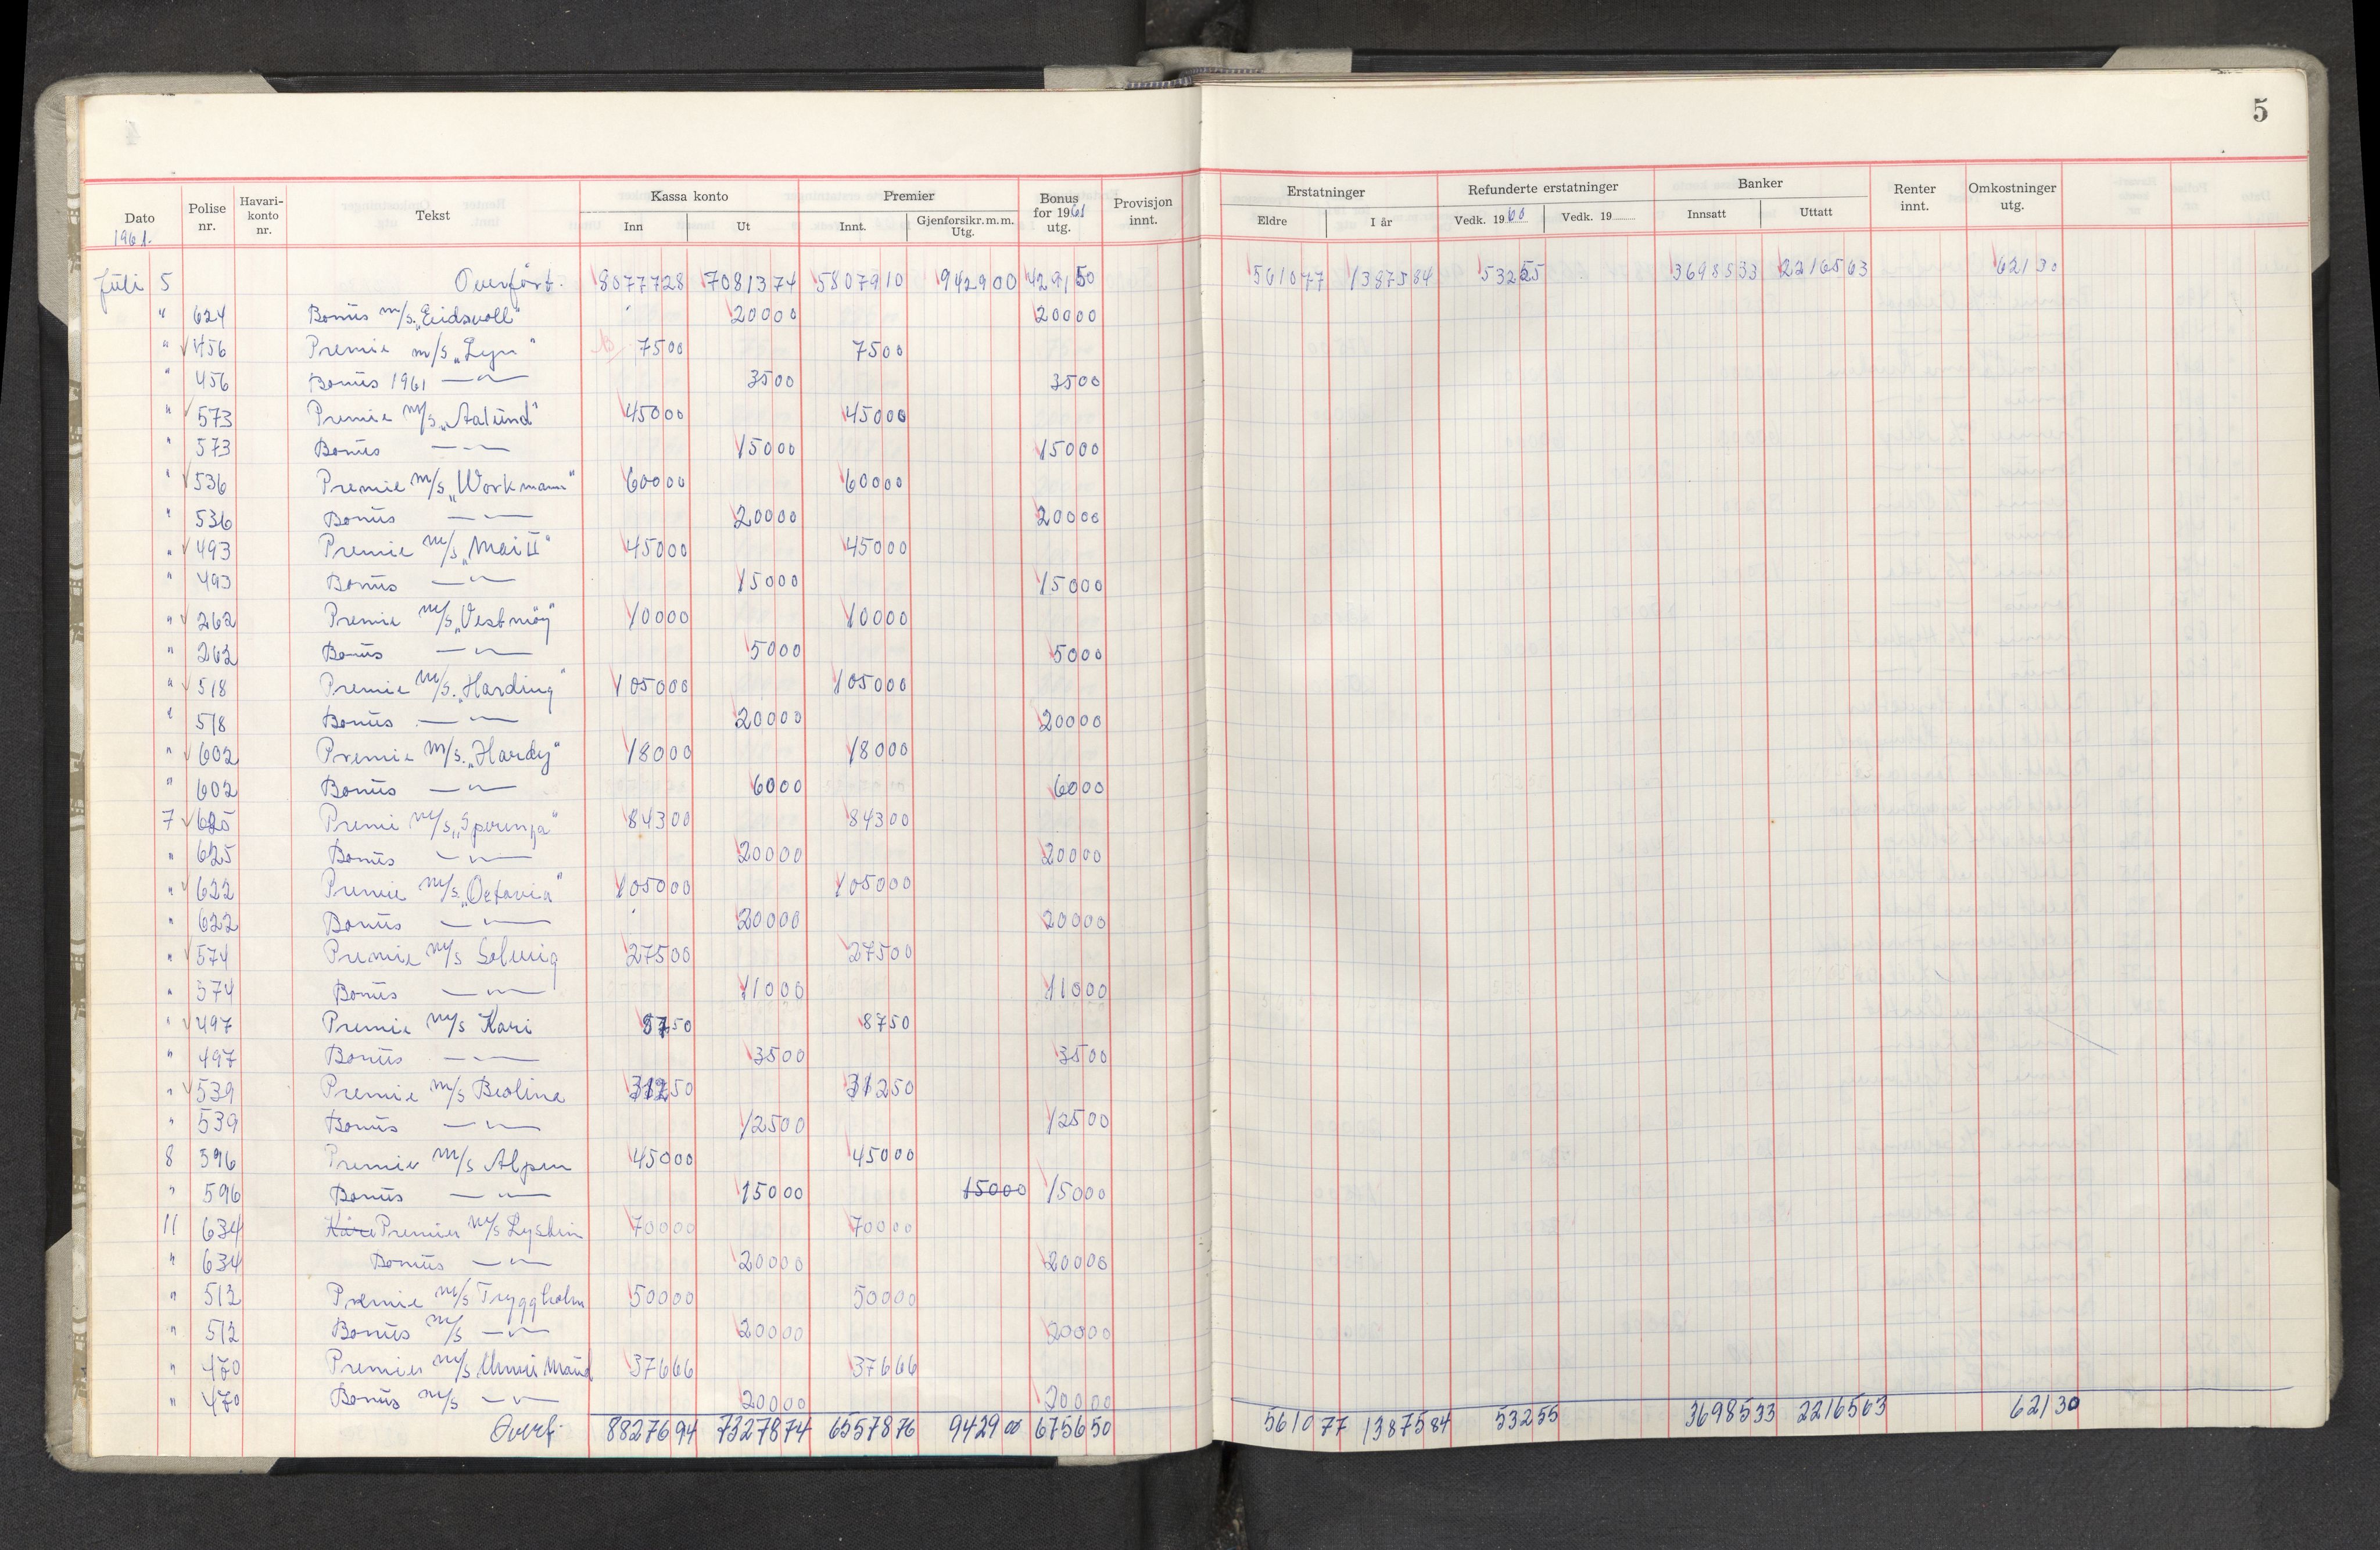 5
Dato Polise nr. Havari-konto nr. Tekst Kassa konto Inn Ut Premier Innt. Gjenforsikr.m.m. Utg. Bonus for 1961 utg. Provisjon innt. Erstatninger Eldre I år Refunderte erstatninger Vedk. 1960 Vedk. 19 Banker Innsatt Uttatt Renter innt. Omkostninger utg.
1961.
Juli 5 Overført. 8077728 7081374 5807910 942900 429150 561077 1387584 53255 3698533 2216563 62130
" 624 Bonus m/s. „Eidsvoll" 20000 20000
" 456 Premie m/s „Lyn" 7500 7500
" 456 Bonus 1961 —"— 3500 3500
" 573 Premie m/s „Aalund" 45000 45000
" 573 Bonus —"— 15000 15000
" 536 Premie m/s „Workmann" 60000 60000
" 536 Bonus —"— 20000 20000
" 493 Premie m/s „Mai II" 45000 45000
" 493 Bonus —"— 15000 15000
" 262 Premie m/s „Vestmøy" 10000 10000
" 262 Bonus —"— 5000 5000
" 518 Premie m/s. „Harding" 105000 105000
" 518 Bonus —"— 20000 20000
" 602 Premie m/s. „Hardy" 18000 18000
" 602 Bonus —"— 6000 6000
7 625 Premi m/s „Sperenza" 84300 84300
" 625 Bonus —"— 20000 20000
" 622 Premie m/s „Octavia" 105000 105000
" 622 Bonus —"— 20000 20000
" 574 Premie m/s Solveig 27500 27500
" 574 Bonus —"— 11000 11000
" 497 Premie m/s Kari 8750 8750
" 497 Bonus —"— 3500 3500
" 539 Premie m/s Beoline 31250 31250
" 539 Bonus —"— 12500 12500
8 596 Premie m/s Alpen 45000 45000
" 596 Bonus —"— 15000 15000 15000
11 634 Premien m/s Lystin 70000 70000
" 634 Bonus —"— 20000 20000
" 512 Premie m/s Tryggholm 50000 50000
" 512 Bonus m/s —"— 20000 20000
" 470 Premien m/s Unni Maud 37666 37666
" 470 Bonus m/s —"— 20000 20000
Overf. 8827694 7327874 6557876 942900 675650 561077 1387584 53255 3698533 2216563 62130